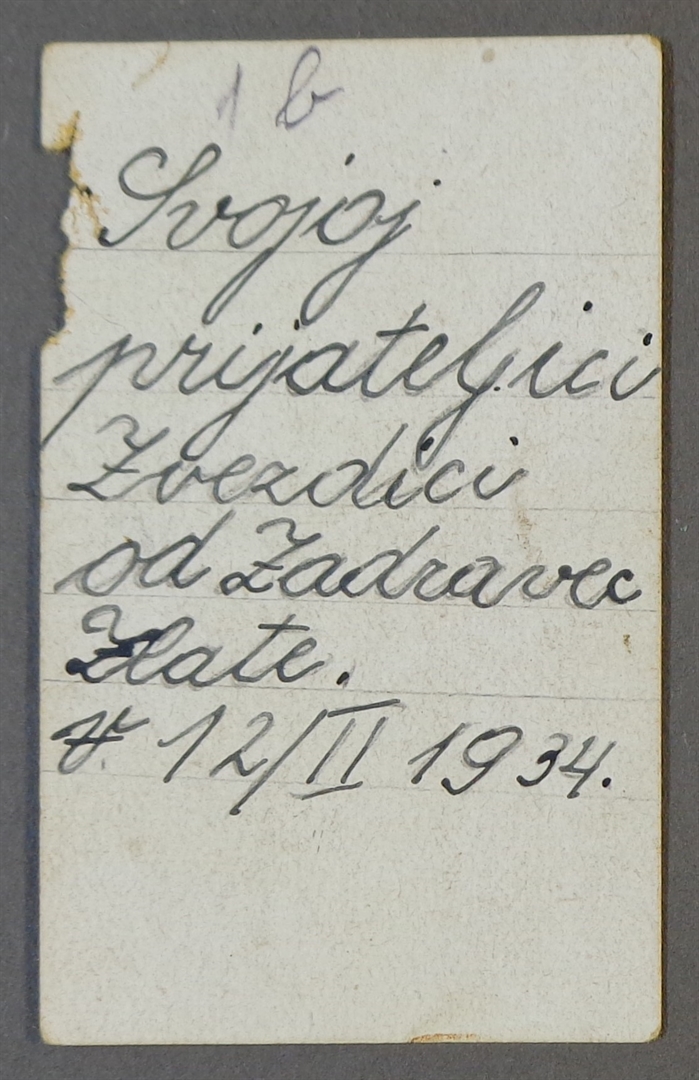 1 b
Svojoj
prijateljici
Zvezdici
od Zadravec
Zlate.
V. 12/II 1934.